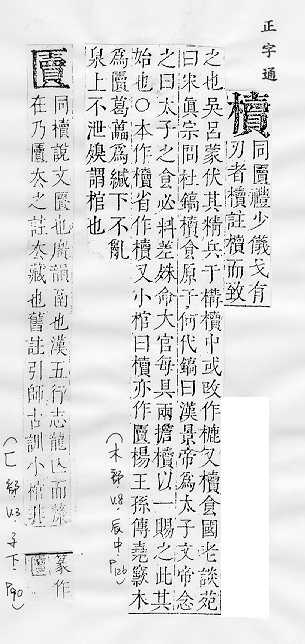 正字通
櫝
同匵禮少儀戈有
刃者櫝註櫝而致
之也吳呂蒙伏其精兵于構櫝中或改作樚又櫝食國老談苑
曰宋眞宗問杜鎬櫝食原于何代鎬曰漢景帝為太子文帝念
之曰太子之食必料差殊命大官每具兩擔櫝以一賜之此其
始也○本作櫝省作又小棺曰櫝亦作匵楊王孫傳堯窾木
為匵葛藟為緘下不亂
泉上不泄殠謂棺也
(木部 U8,辰中 P126)
匵
同櫝說文匱也廣韻函也漢五行志龍亡而漦
在乃匵去之註去藏也舊註引師古訓小櫝非
篆作
匵
(匚部 U3 子下 P90)